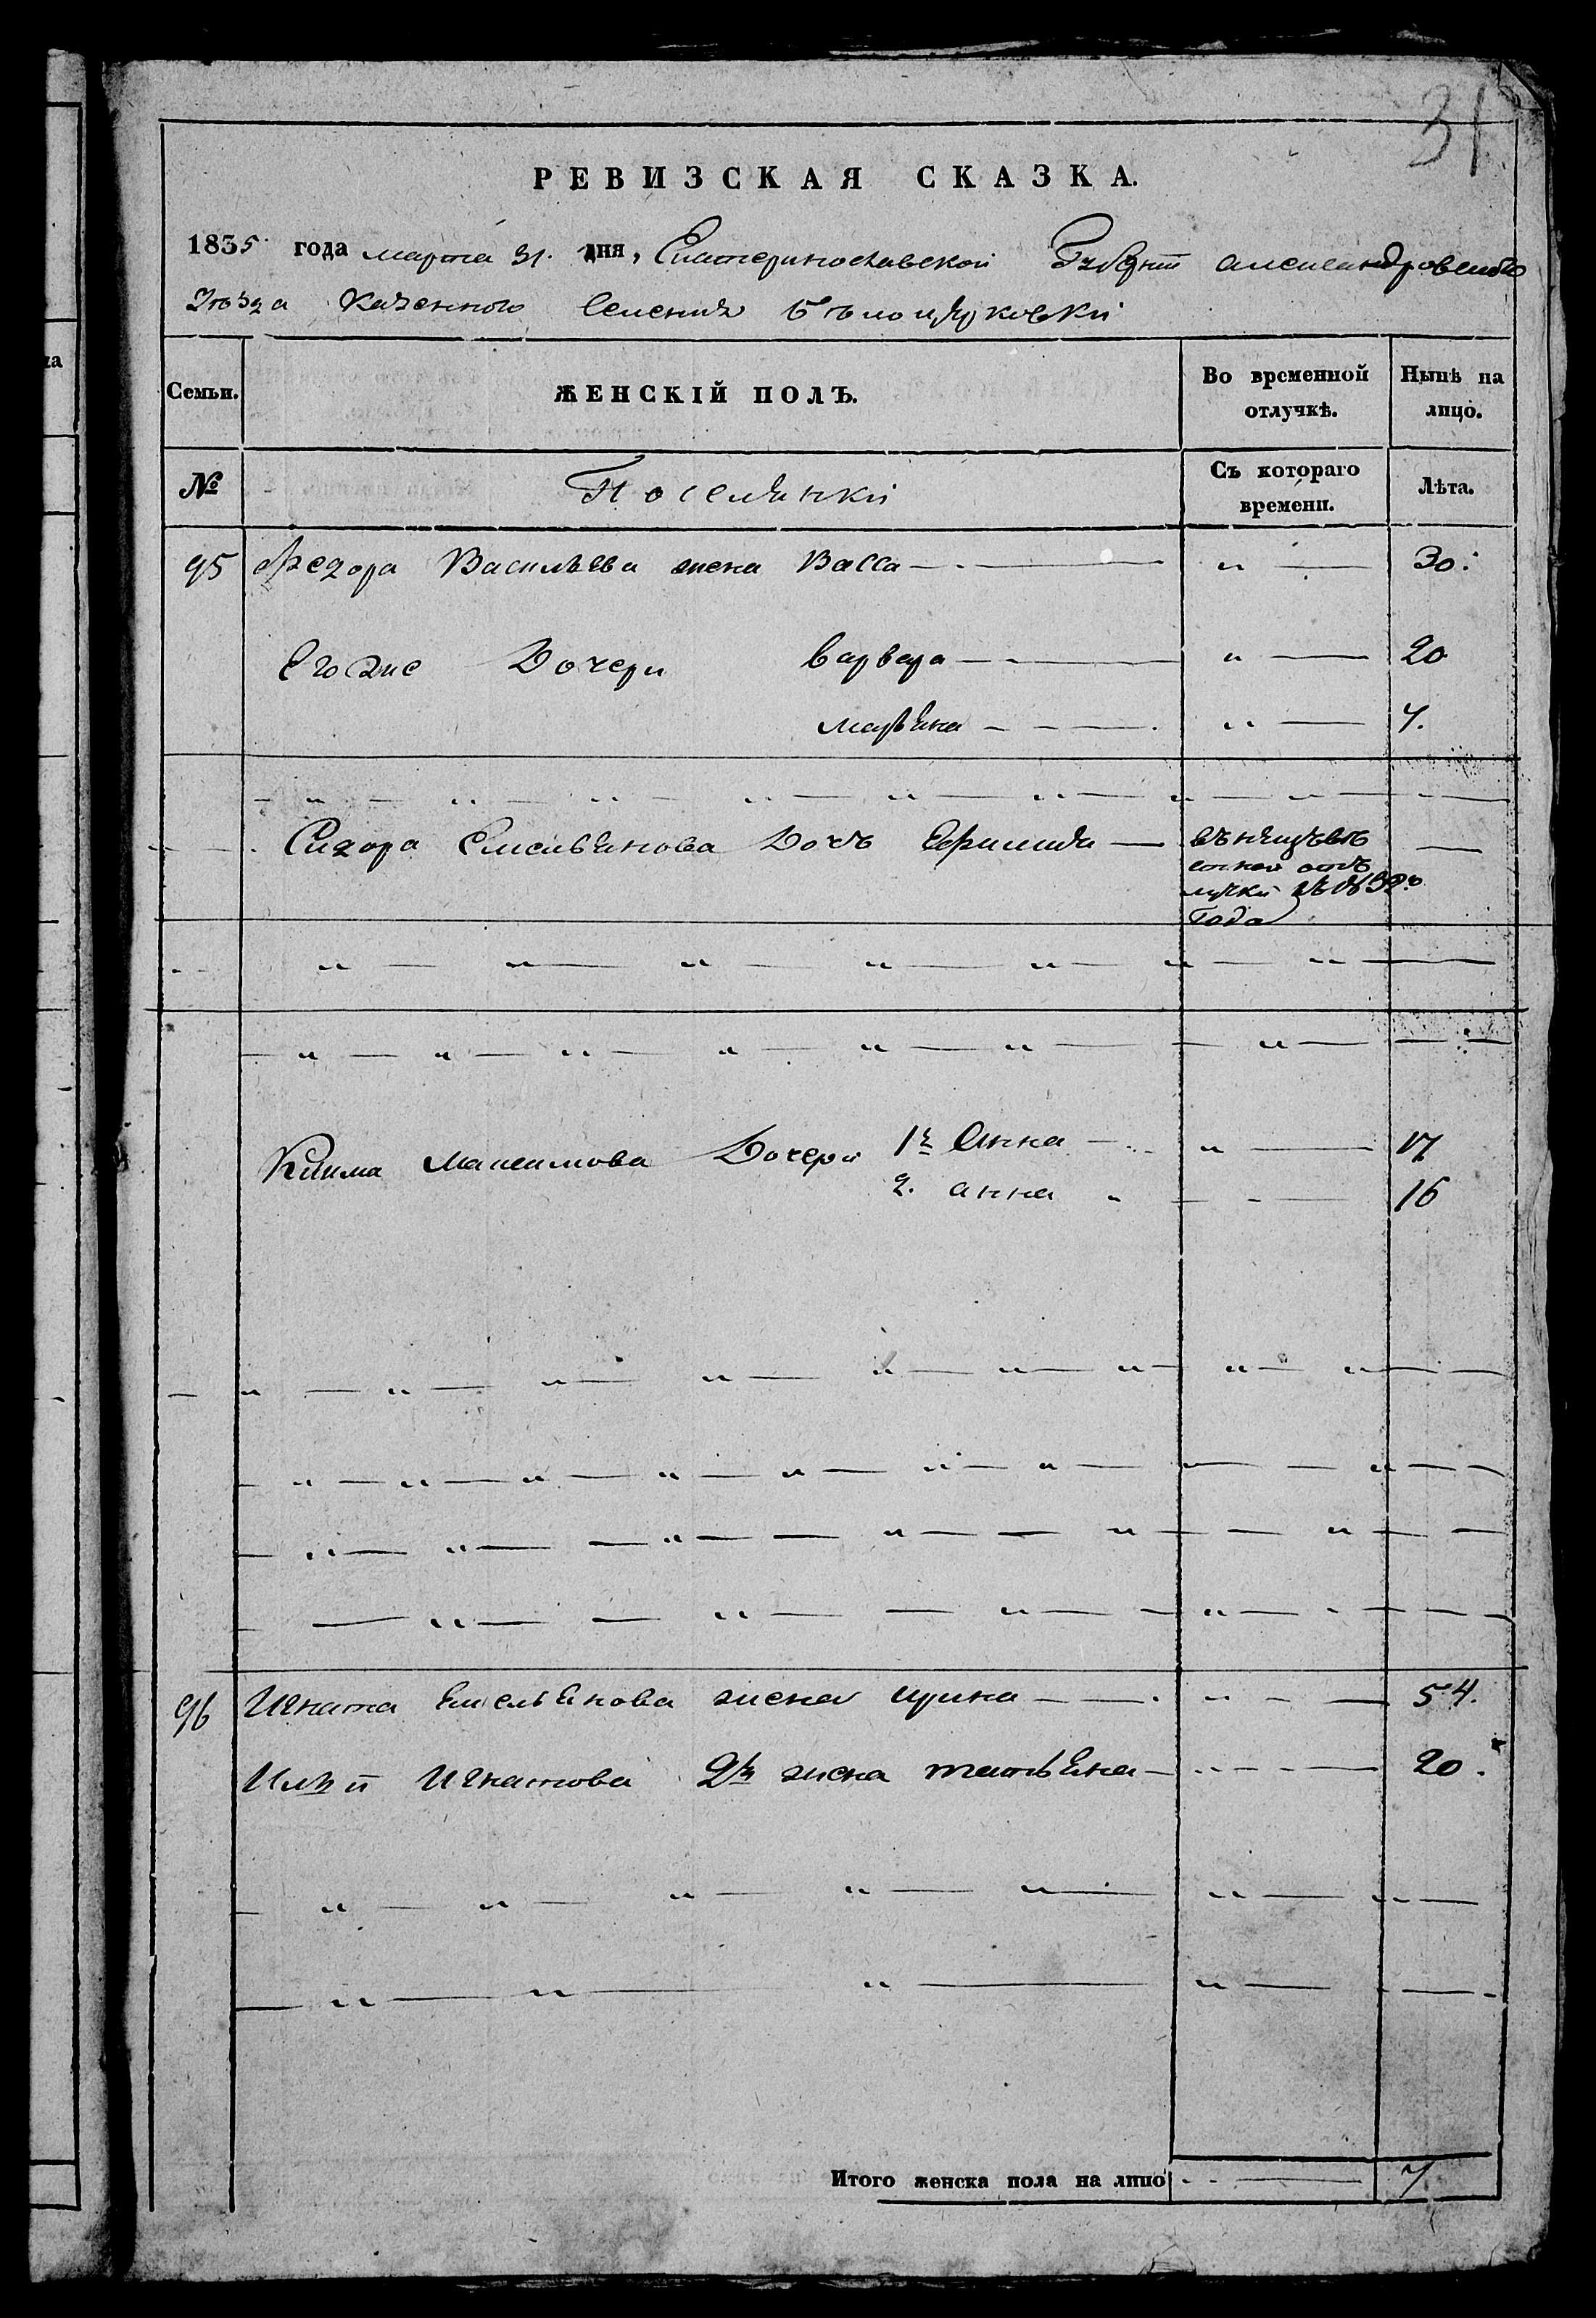 31
РЕВИЗСКАЯ СКАЗКА.
1835 года марта 31. дня, Екатеринославской Губерніи александровскаго
Уѣзда Казенного Селенія Бѣлоцерковки
Семьи. ЖЕНСКІЙ ПОЛЪ. Во временной отлучкѣ. Нынѣ на лицо.
№ Поселянки Съ котораго времени. Лѣта.
95 Федора Васильева жена Васса — " — 30.
Его же Дочери варвара — " — 20
марьяна — " — 7.
Сидора Емельянова Дочь Ефимия — въ неизвѣстной отлучки съ 1832го Года
Клима Максимова Дочери 1я Анна — " — 17
2. анна " — 16
96 Игната Емельянова жена ирина — " — 54.
Ильи Игнатова 2я жена татьяна — " — 20.
Итого женска пола на лицо — 7